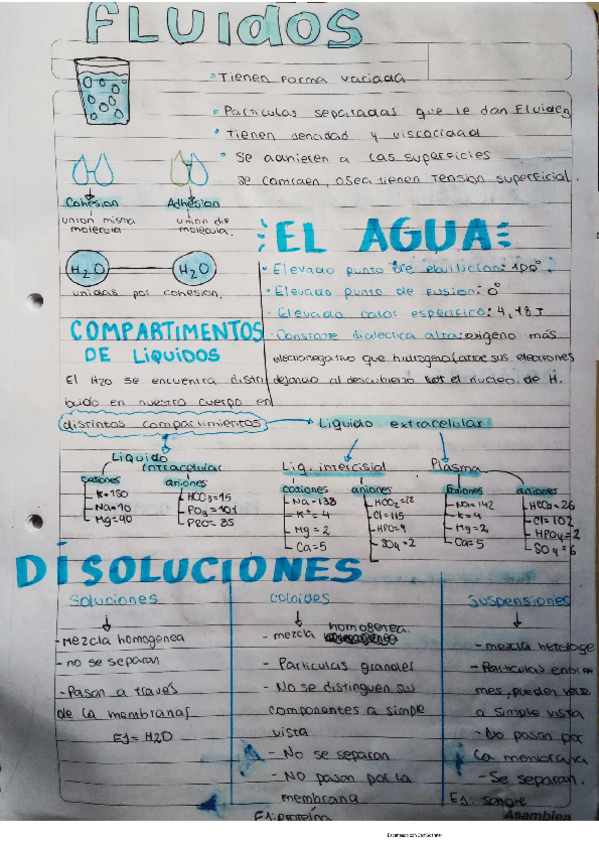 FLUIDOS
• Tienen forma variada
• Particulas separadas que le dan Fluidez
• Tienen dencidad y viscocidad
• Se adhieren a las superficies
se contraen, osea tienen tension superficial.
Cohesion
Adhesion
union misma
molecula
union dif
molecula.
H2O
H2O
unidas por cohesion.
EL AGUA
• Elevado punto de ebullicion: 100°.
• Elevado punto de fusion: 0°
• Elevado calor especifico: 4,18 J
• Constante dialectica alta: oxigeno más
electronegativo que hidrogeno (atrae sus electrones
dejando al descubierto el nucleo de H.
COMPARTIMENTOS
DE LIQUIDOS
El H2O se encuentra distri
buido en nuestro cuerpo en
distintos compartimientos
Liquido extracelular
Liquido
intracelular
cationes
K=150
Na=10
Mg=40
aniones
HCO3=15
PO4=101
PRO=85
Liq. intercisial
cationes
Na=138
K+=4
Mg=2
Ca=5
aniones
HCO2=22
Cl=115
HPO=4
SO4=2
Plasma
Na=142
K=4
Mg=2
Ca=5
aniones
HCO2=26
Cl=102
HPO4=2
SO4=6
DISOLUCIONES
soluciones
- mezcla homogenea
- no se separan
- Pasan a traves
de la membranas
Ej= H2O
coloides
- mezcla homogenea.
- Particulas grandes
- No se distinguen sus
componentes a simple
vista
- No se separan
- NO pasan por la
membrana
Ej: proteina
suspensiones
- mezcla heteroge
- Particulas enor
mes, pueden verse
a simple vista
- No pasan por
la membrana
- Se separan.
Ej: sangre
Asamblea
Escaneado con CamScanner